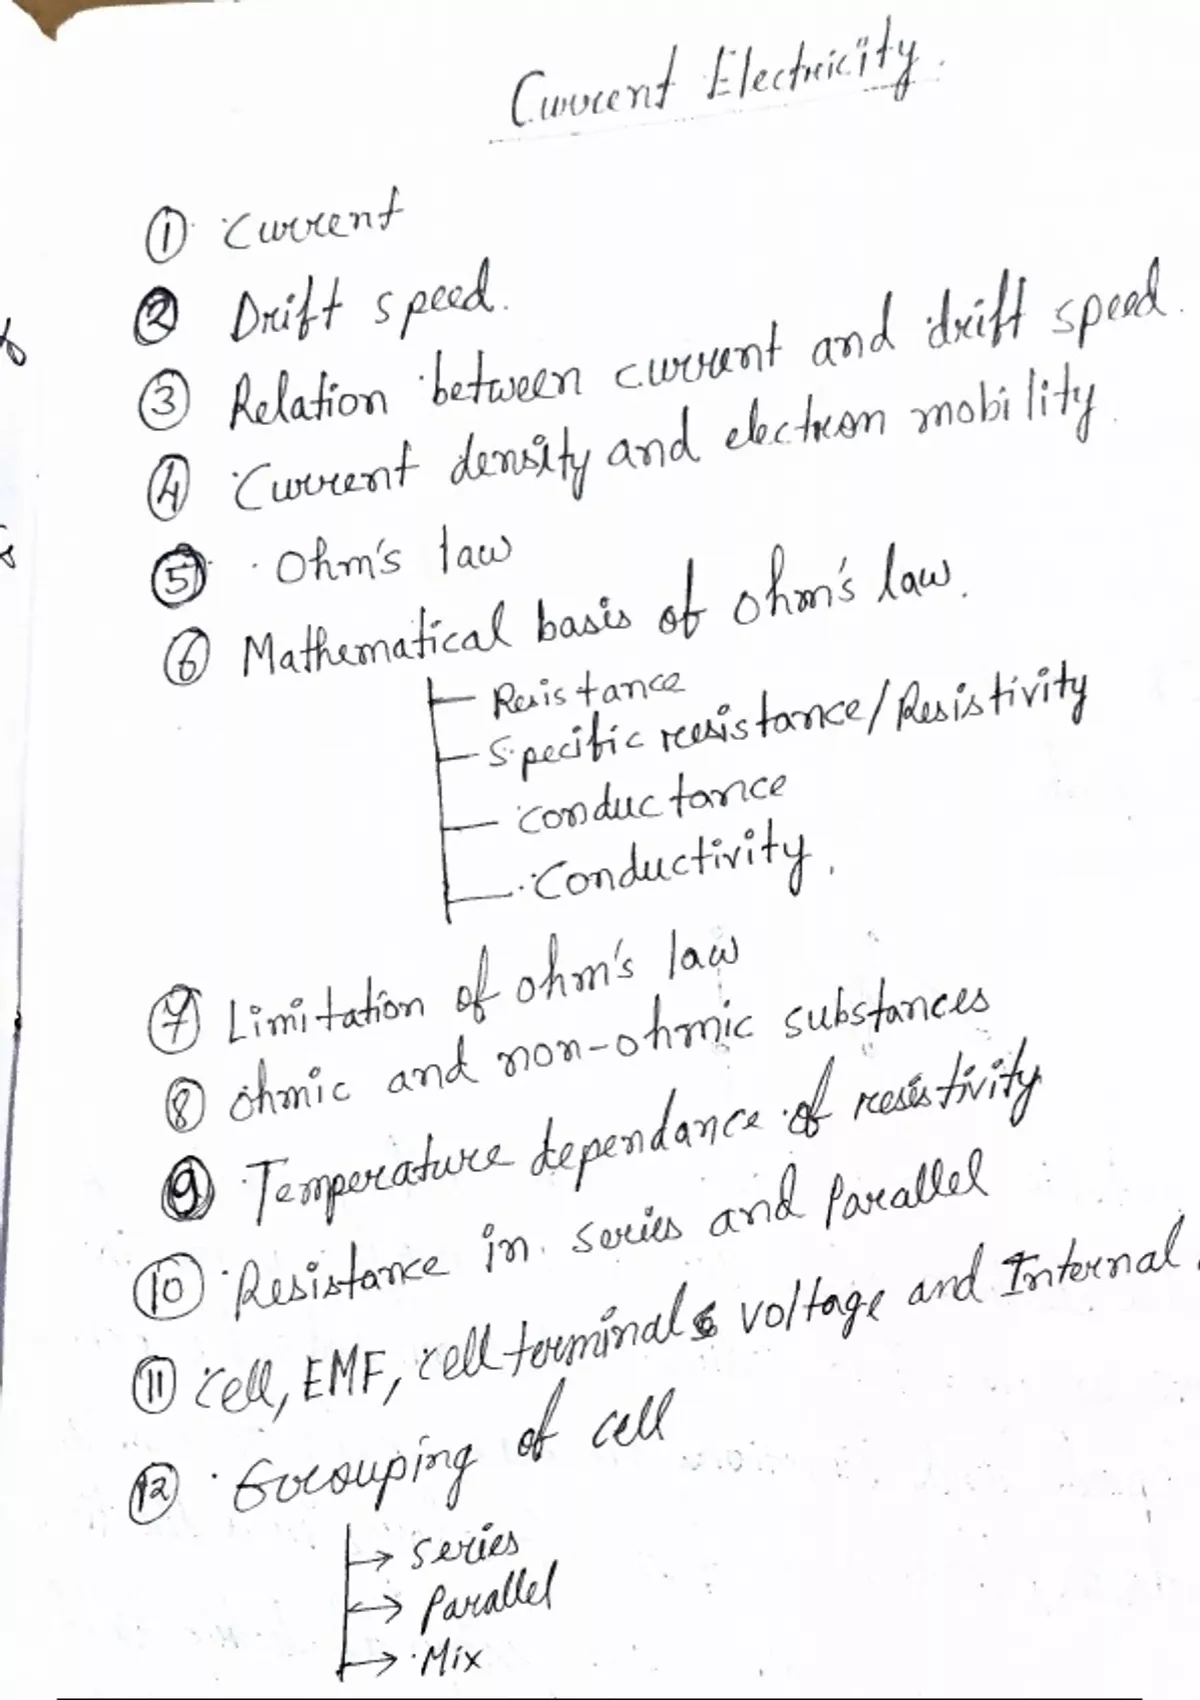 Current Electricity.
① Current
② Drift speed.
③ Relation between current and drift speed.
④ Current density and electron mobility.
⑤ Ohm's law
⑥ Mathematical basis of ohm's law.
Resistance
Specific resistance/Resistivity
conductance
Conductivity.
⑦ Limitation of ohm's law
⑧ ohmic and non-ohmic substances
⑨ Temperature dependance of resistivity
⑩ Resistance in series and Parallel
⑪ cell, EMF, cell terminals voltage and Internal
⑫ Grouping of cell
→ Series
→ Parallel
→ Mix